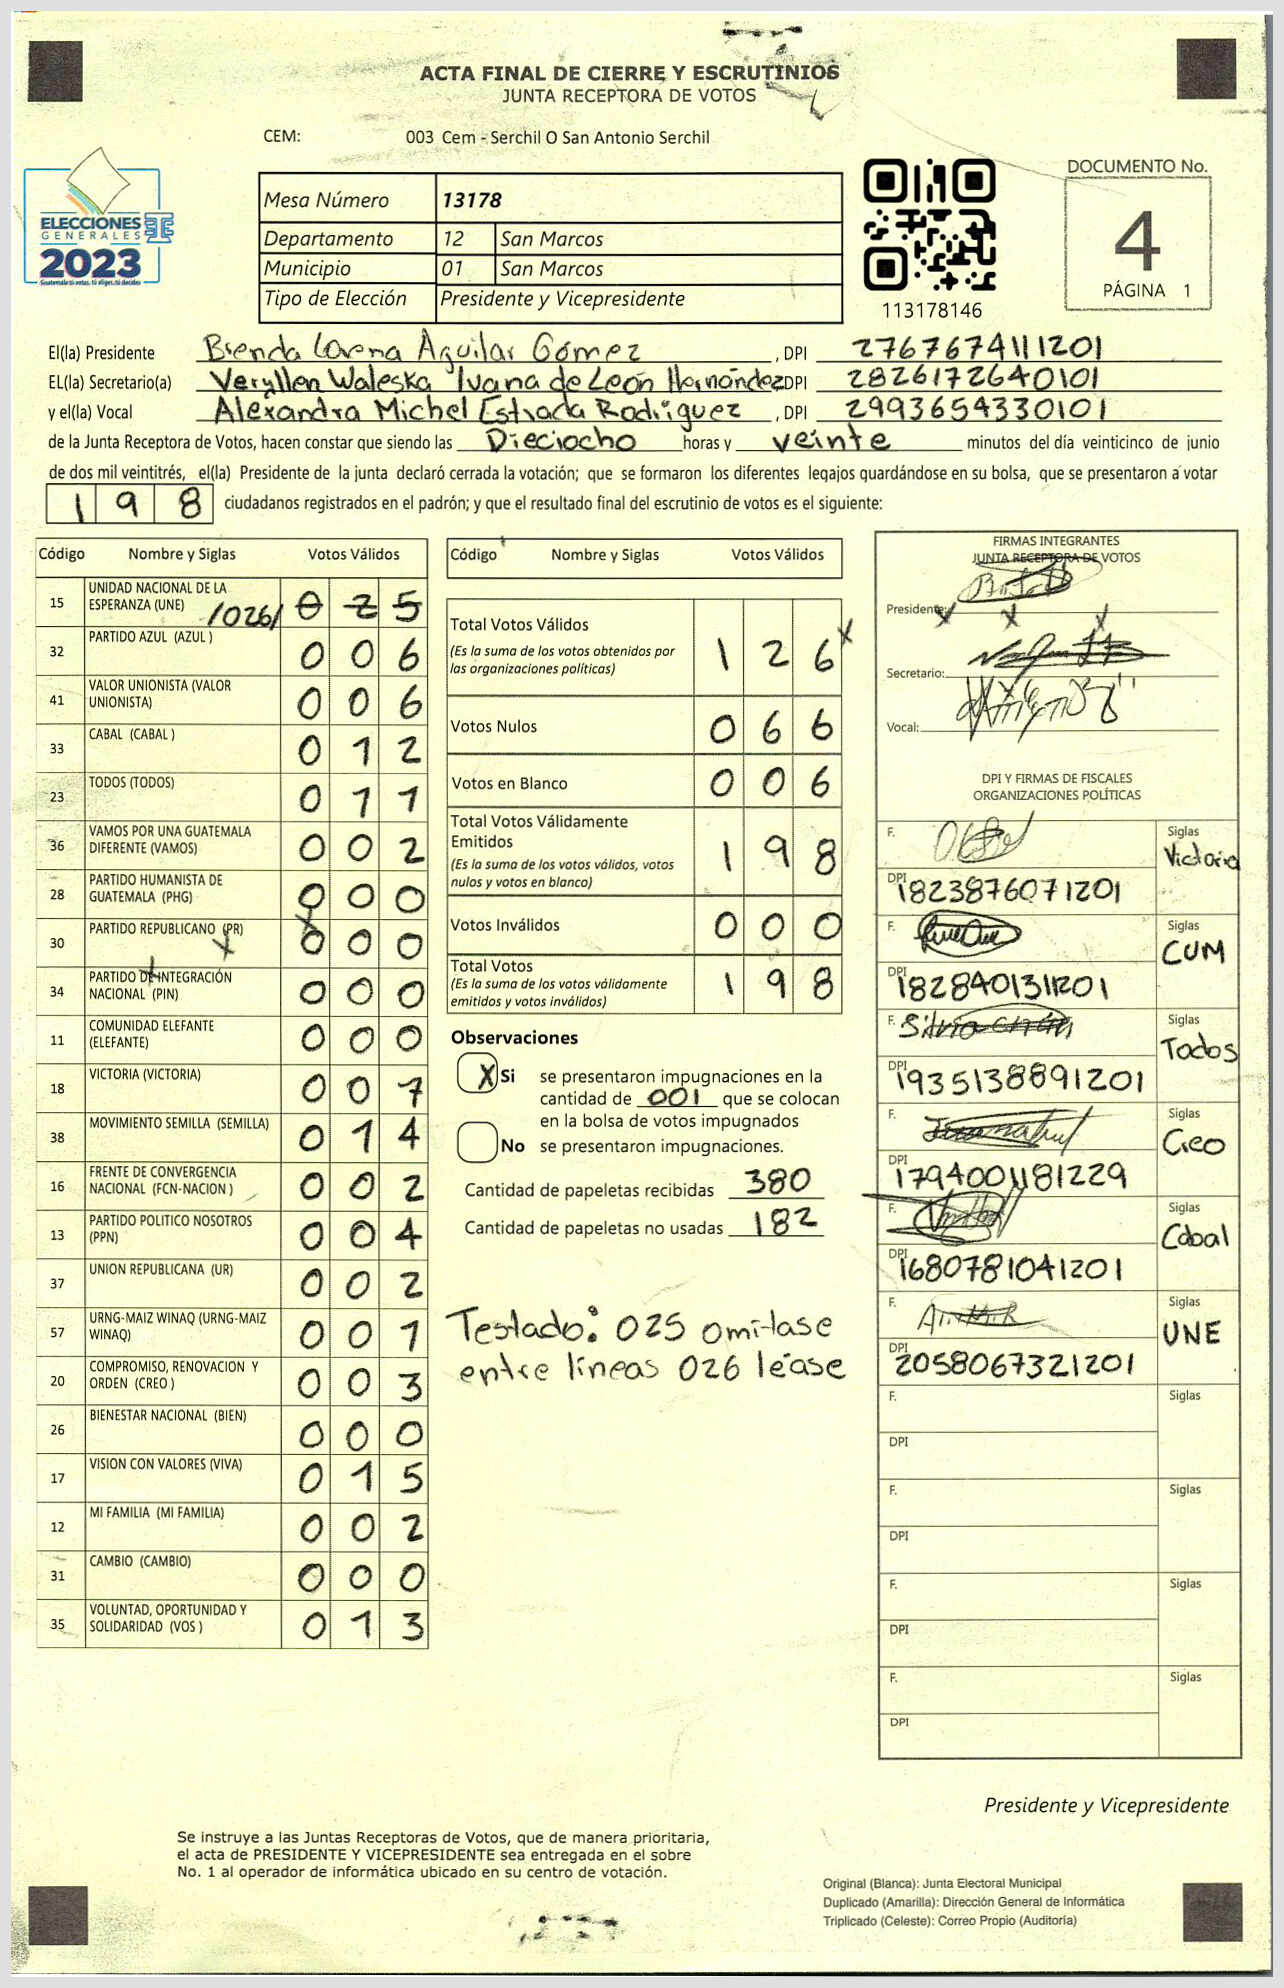 ACTA FINAL DE CIERRE Y ESCRUTINIOS
JUNTA RECEPTORA DE VOTOS
CEM: 003 Cem - Serchil O San Antonio Serchil
ELECCIONES
GENERALES
2023
Guatemala tú votas, tú eliges, tú decides
Mesa Número 13178
Departamento 12 San Marcos
Municipio 01 San Marcos
Tipo de Elección Presidente y Vicepresidente
113178146
DOCUMENTO No.
4
PÁGINA 1
El(la) Presidente Brenda Lorena Aguilar Gómez , DPI 2767674111201
EL(la) Secretario(a) Veryllen Waleska Ivana de León Hernández DPI 2826172640101
y el(la) Vocal Alexandra Michel Estrada Rodríguez , DPI 2993654330101
de la Junta Receptora de Votos, hacen constar que siendo las Dieciocho horas y veinte minutos del día veinticinco de junio
de dos mil veintitrés, el(la) Presidente de la junta declaró cerrada la votación; que se formaron los diferentes legajos guardándose en su bolsa, que se presentaron a votar
198 ciudadanos registrados en el padrón; y que el resultado final del escrutinio de votos es el siguiente:
Código Nombre y Siglas Votos Válidos
15 UNIDAD NACIONAL DE LA ESPERANZA (UNE) /026/ 0 2 5
32 PARTIDO AZUL (AZUL ) 0 0 6
41 VALOR UNIONISTA (VALOR UNIONISTA) 0 0 6
33 CABAL (CABAL ) 0 1 2
23 TODOS (TODOS) 0 1 1
36 VAMOS POR UNA GUATEMALA DIFERENTE (VAMOS) 0 0 2
28 PARTIDO HUMANISTA DE GUATEMALA (PHG) 0 0 0
30 PARTIDO REPUBLICANO (PR) 0 0 0
34 PARTIDO DE INTEGRACIÓN NACIONAL (PIN) 0 0 0
11 COMUNIDAD ELEFANTE (ELEFANTE) 0 0 0
18 VICTORIA (VICTORIA) 0 0 7
38 MOVIMIENTO SEMILLA (SEMILLA) 0 1 4
16 FRENTE DE CONVERGENCIA NACIONAL (FCN-NACION ) 0 0 2
13 PARTIDO POLITICO NOSOTROS (PPN) 0 0 4
37 UNION REPUBLICANA (UR) 0 0 2
57 URNG-MAIZ WINAQ (URNG-MAIZ WINAQ) 0 0 1
20 COMPROMISO, RENOVACION Y ORDEN (CREO ) 0 0 3
26 BIENESTAR NACIONAL (BIEN) 0 0 0
17 VISION CON VALORES (VIVA) 0 1 5
12 MI FAMILIA (MI FAMILIA) 0 0 2
31 CAMBIO (CAMBIO) 0 0 0
35 VOLUNTAD, OPORTUNIDAD Y SOLIDARIDAD (VOS ) 0 1 3
Código Nombre y Siglas Votos Válidos
Total Votos Válidos 1 2 6
(Es la suma de los votos obtenidos por
las organizaciones políticas)
Votos Nulos 0 6 6
Votos en Blanco 0 0 6
Total Votos Válidamente
Emitidos 1 9 8
(Es la suma de los votos válidos, votos
nulos y votos en blanco)
Votos Inválidos 0 0 0
Total Votos 1 9 8
(Es la suma de los votos válidamente
emitidos y votos inválidos)
Observaciones
X Si se presentaron impugnaciones en la
cantidad de 001 que se colocan
en la bolsa de votos impugnados
No se presentaron impugnaciones.
Cantidad de papeletas recibidas 380
Cantidad de papeletas no usadas 182
Testado: 025 omitase
entre líneas 026 léase
FIRMAS INTEGRANTES
JUNTA RECEPTORA DE VOTOS
Presidente:
Secretario:
Vocal:
DPI Y FIRMAS DE FISCALES
ORGANIZACIONES POLÍTICAS
F. Siglas Victoria
DPI 1823876071201
F. Siglas CUM
DPI 1828401311201
F. Silvia Siglas Todos
DPI 1935138891201
F. Siglas Creo
DPI 1794001181229
F. Siglas Cabal
DPI 1680781041201
F. Siglas UNE
DPI 2058067321201
F. Siglas
DPI
F. Siglas
DPI
F. Siglas
DPI
F. Siglas
DPI
Presidente y Vicepresidente
Se instruye a las Juntas Receptoras de Votos, que de manera prioritaria,
el acta de PRESIDENTE Y VICEPRESIDENTE sea entregada en el sobre
No. 1 al operador de informática ubicado en su centro de votación.
Original (Blanca): Junta Electoral Municipal
Duplicado (Amarilla): Dirección General de Informática
Triplicado (Celeste): Correo Propio (Auditoría)